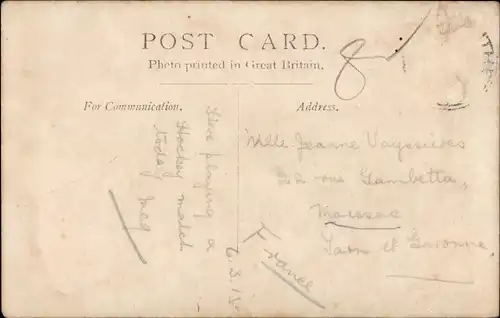 POST CARD.
Photo printed in Great Britain.
For Communication.
Address.
playing a
Hockey match
today
Meg
Mlle Jeanne Vayssières
22 rue Gambetta,
Moissac
Tarn et Garonne,
France